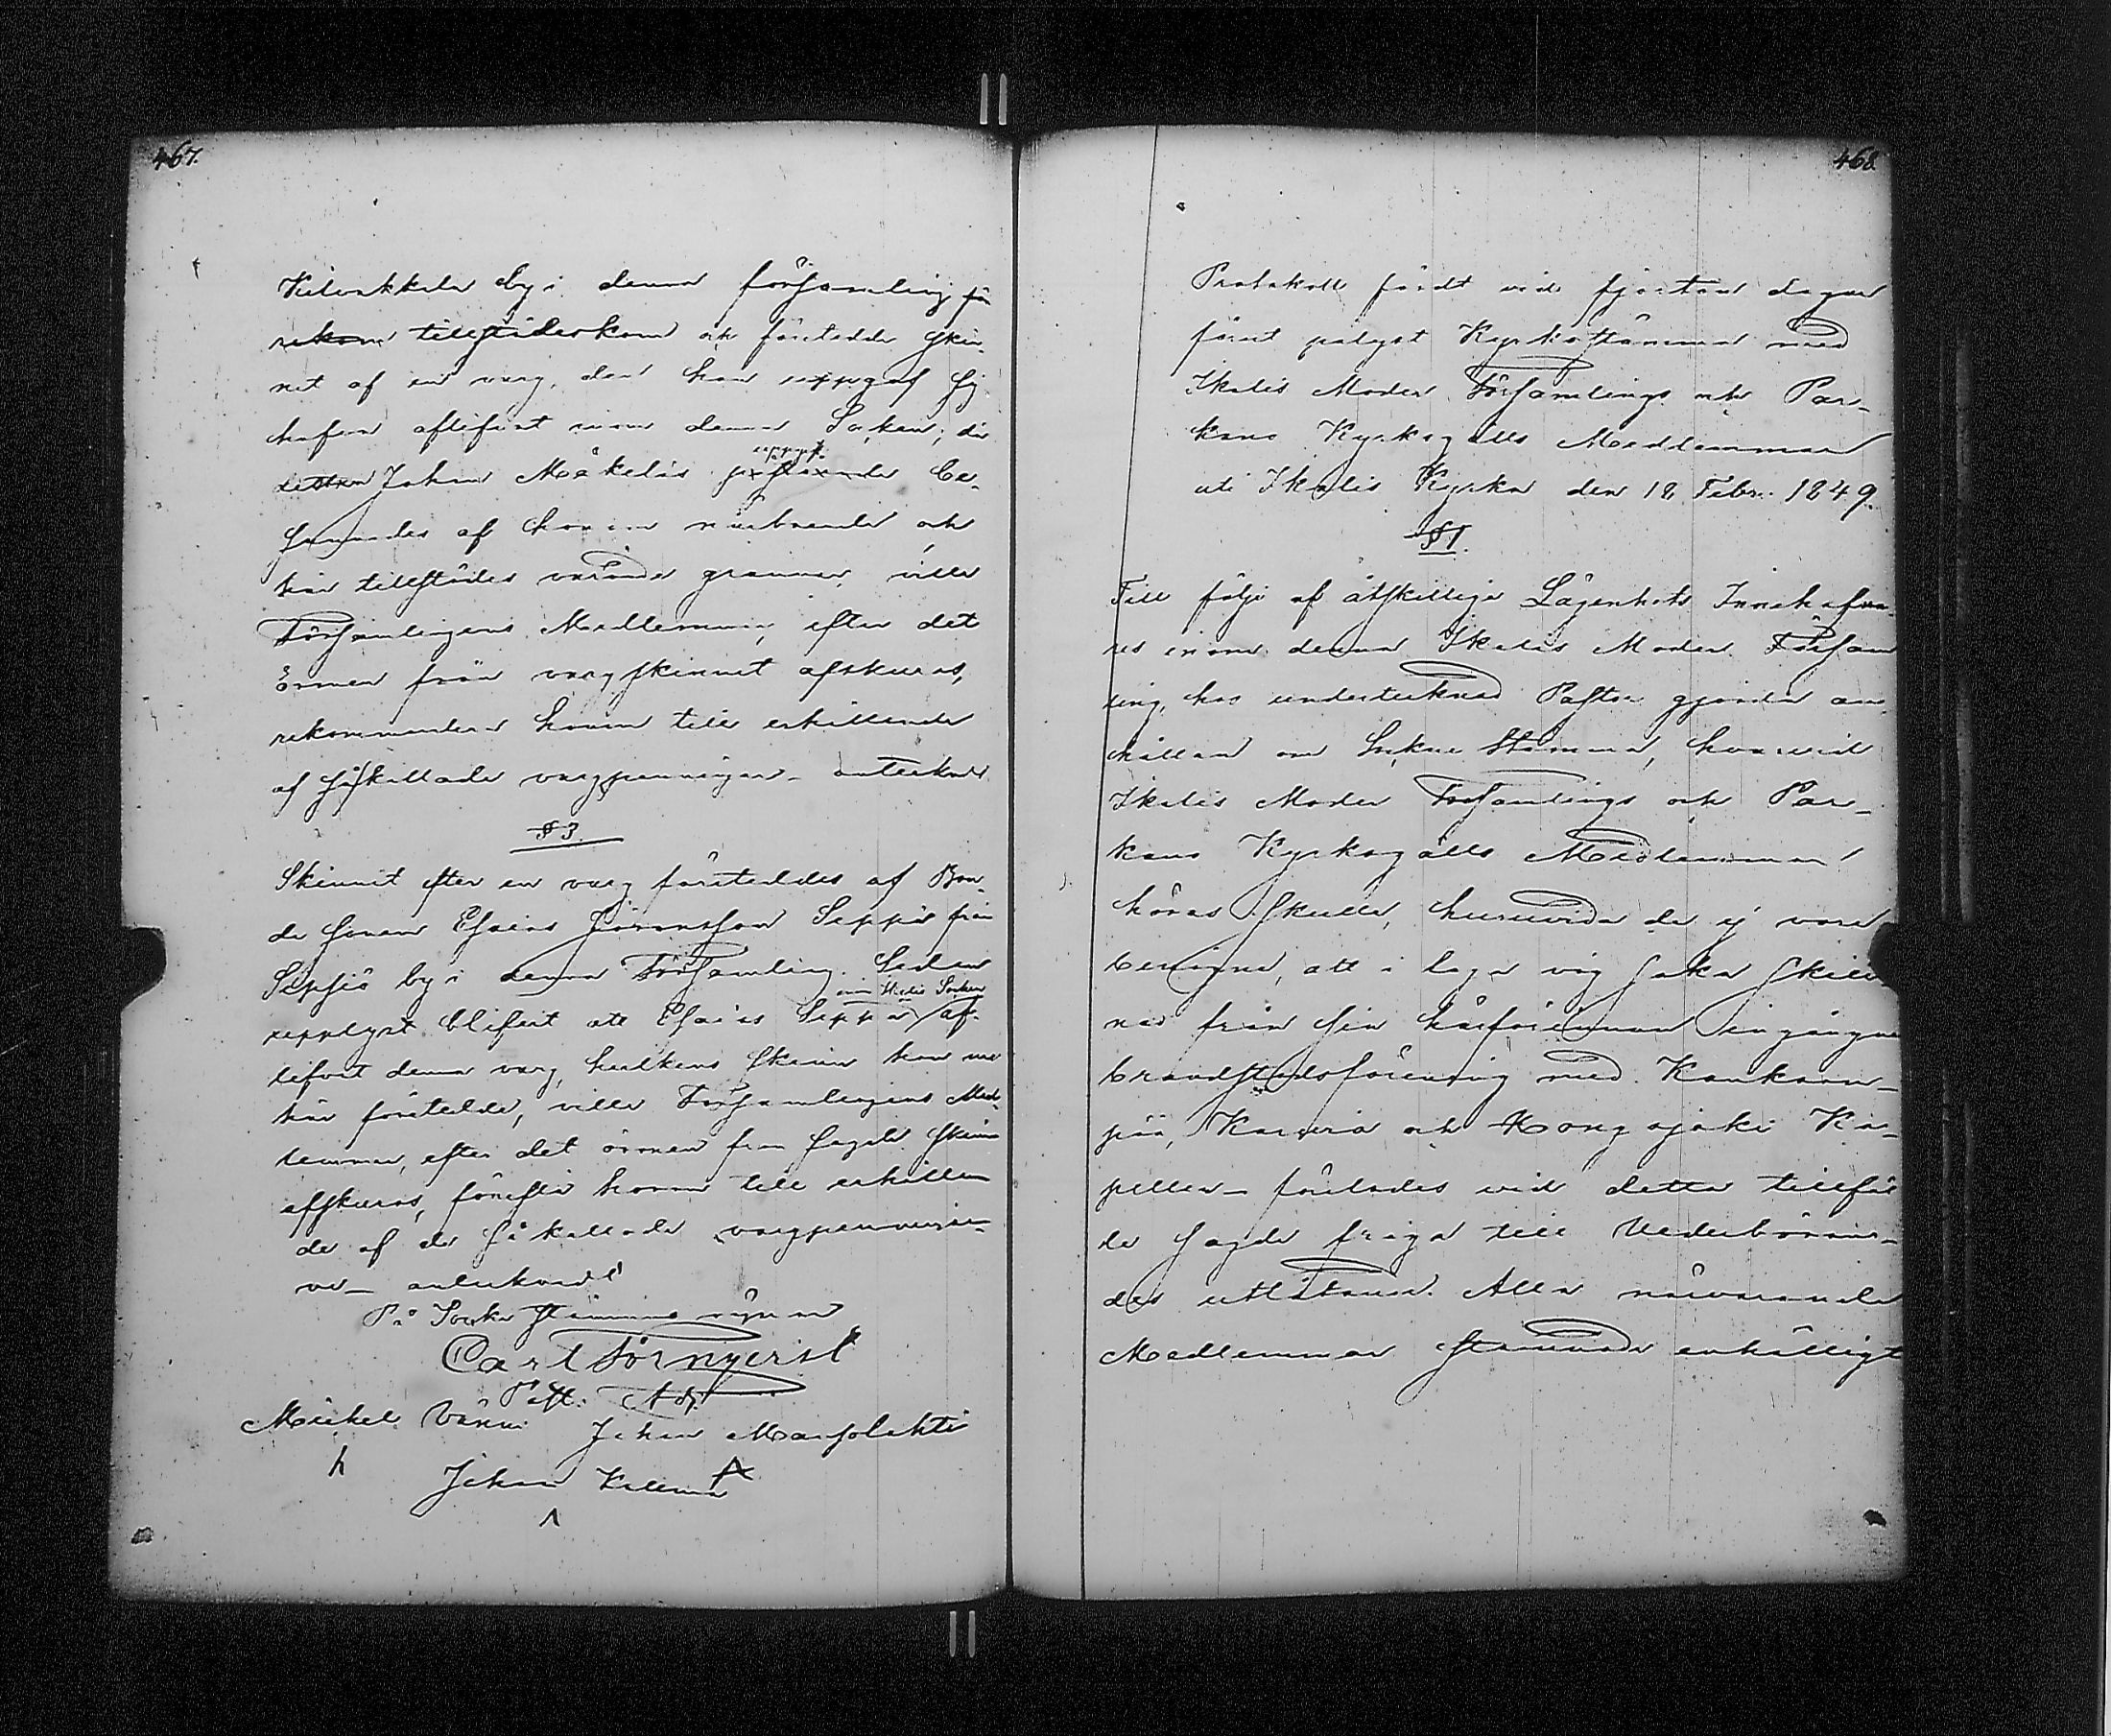 467.
Kilvakkala by i denna församling fö
rekom tillstädeskom och företedde skin¬
net af en varg, den han uppgaf sig
hafva aflifvat inom denna Socken; då
detta Johan Mäkeläs påstående uppgift be¬
sannades af honom närboende och
här tillstädes varande grannar, ville
Församlingens Medlemmar, efter det
öronen från vargskinnet afskuros,
rekommendera honom till erhållande
af så kallade vargpenningar_ antecknades
§ 3.
Skinnet efter en varg företeddes af Bon¬
de sonen Esaias Göransson Seppä från
Sipsiö by i denna Församling. Sedan
upplyst blifvit att Esaias Seppä inom Ikalis Socken af¬
lifvat denna varg, hvilkens skinn han nu
här företedde, ville Församlingens Med¬
lemmar, efter det öronen från sagde skinn
afskuros, föreslå honom till erhållan
de af de så kallade vargpenningar¬
ne_ antecknades
På Sockne Stämmans vägnar
Carl Törnqvist
Past: Adj.
Michel Vänni Johan Mansolahti
Johan Kallma
468.
Protokoll fördt vid fjorton dagar
förut pålyst Kyrkostämma med
Ikalis Moder Församlings och Par¬
kano Kyrkogälls Medlemmar
uti Ikalis Kyrka den 18 Febr: 1849.
§ 1.
Till följe af åtskillige Lägenhets Innehafva¬
res inom denna Ikalis Moder Försam
ling, hos undertecknad Pastor gjorda an¬
hållan om Sockne Stämma, hvarvid
Ikalis Moder Församlings och Par¬
kano Kyrkogälls Medlemmar
höras skulle, huruvida de ej vore
benägna, att i laga väg söka skill
nad från sin härförinnan ingångna
brandstodsförening med Kankaan¬
pää, Karvia och Hongojoki Ka¬
peller_ förelades vid detta tillfäl
le sagde fråga till Vederböran¬
des utlåtande. Alla närvarande
Medlemmar stannade enhälligt